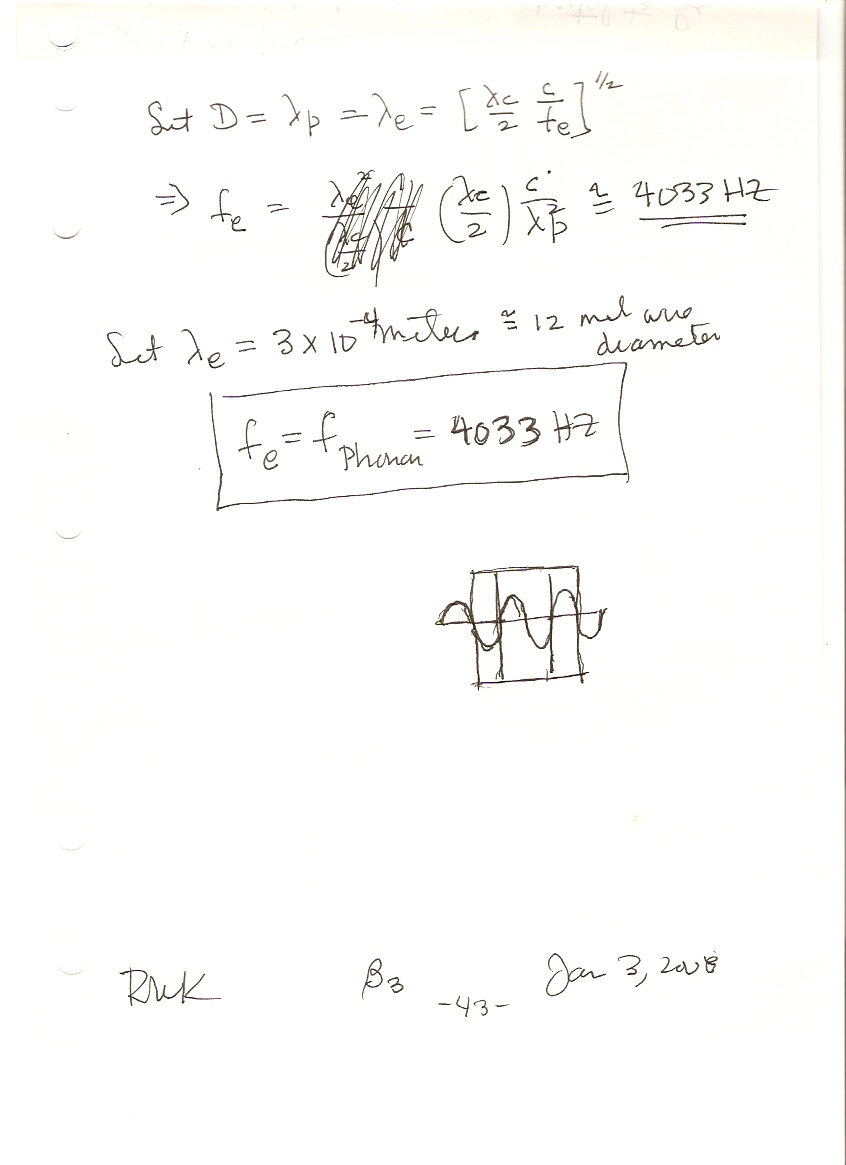 Set D = λp = λe = [λc/2 c/fe]^1/2
⇒ fe = (λc/2) c/λp² ≅ 4033 HZ
Set λe = 3 x 10^-4 meters ≅ 12 mil wire
diameter
fe = fPhonon = 4033 HZ
RWK β3 -43- Jan 3, 2008